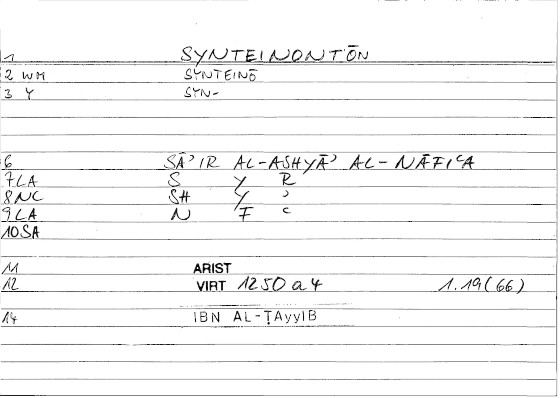 1 SYNTEINONTŌN
2 WM SYNTEINŌ
3 Y SYN-
6 SĀʾIR AL-ASHYĀʾ AL-NĀFIʿA
7LA S Y R
8NC SH Y ʾ
9LA N F ʿ
10SA
11 ARIST
12 VIRT 1250 a 4 1.19(66)
14 IBN AL-ṬAyyIB